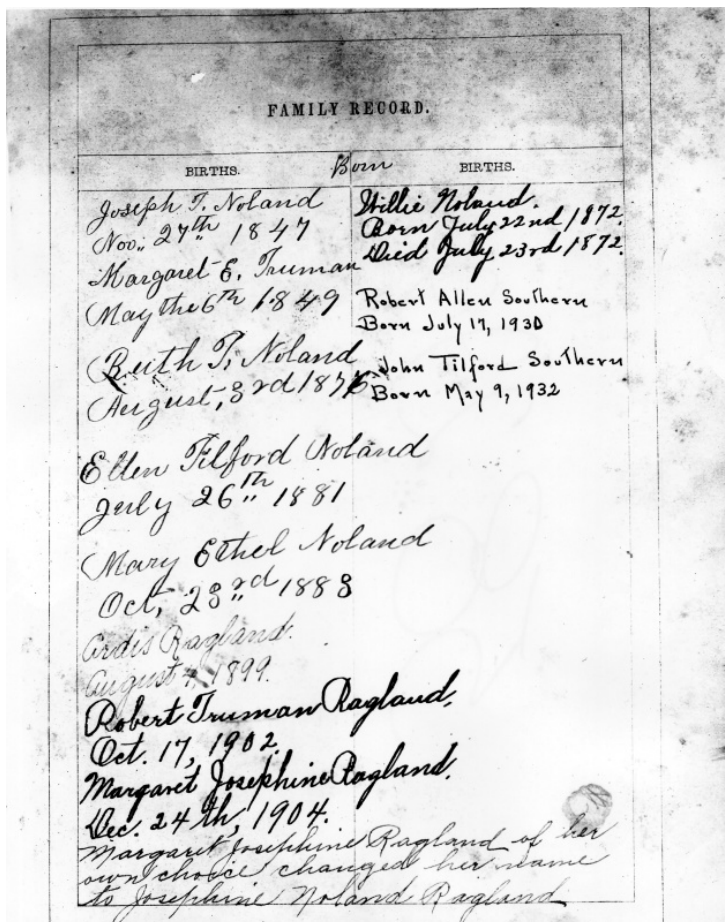 FAMILY RECORD.
BIRTHS.
Born
BIRTHS.
Joseph T. Noland
Nov. 27th 1847
Margaret E. Truman
May the 6th 1849
Ruth T. Noland
August, 3rd 187
Ellen Tilford Noland
July 26th 1881
Mary Ethel Noland
Oct, 23rd 1883
Ardis Ragland.
August 4, 1899.
Robert Truman Ragland.
Oct. 17, 1902.
Margaret Josephine Ragland.
Dec. 24th, 1904.
Margaret Josephine Ragland of her
own choice changed her name
to Josephine Noland Ragland
Willie Noland.
Born July 22nd 1872.
Died July 23rd 1872.
Robert Allen Southern
Born July 17, 1930
John Tilford Southern
Born May 9, 1932